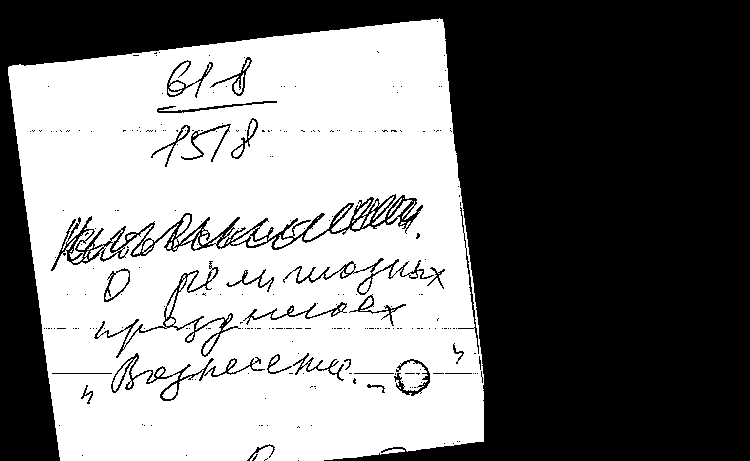 61-8
1518
О религиозных
праздниках
„Вознесение.